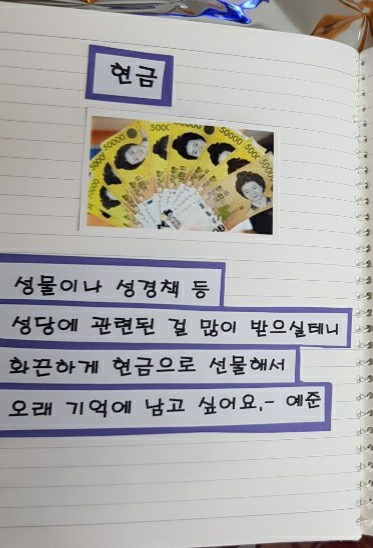 현금
50000
50000
50000
성물이나 성경책 등
성당에 관련된 걸 많이 받으실테니
화끈하게 현금으로 선물해서
오래 기억에 남고 싶어요.- 예준